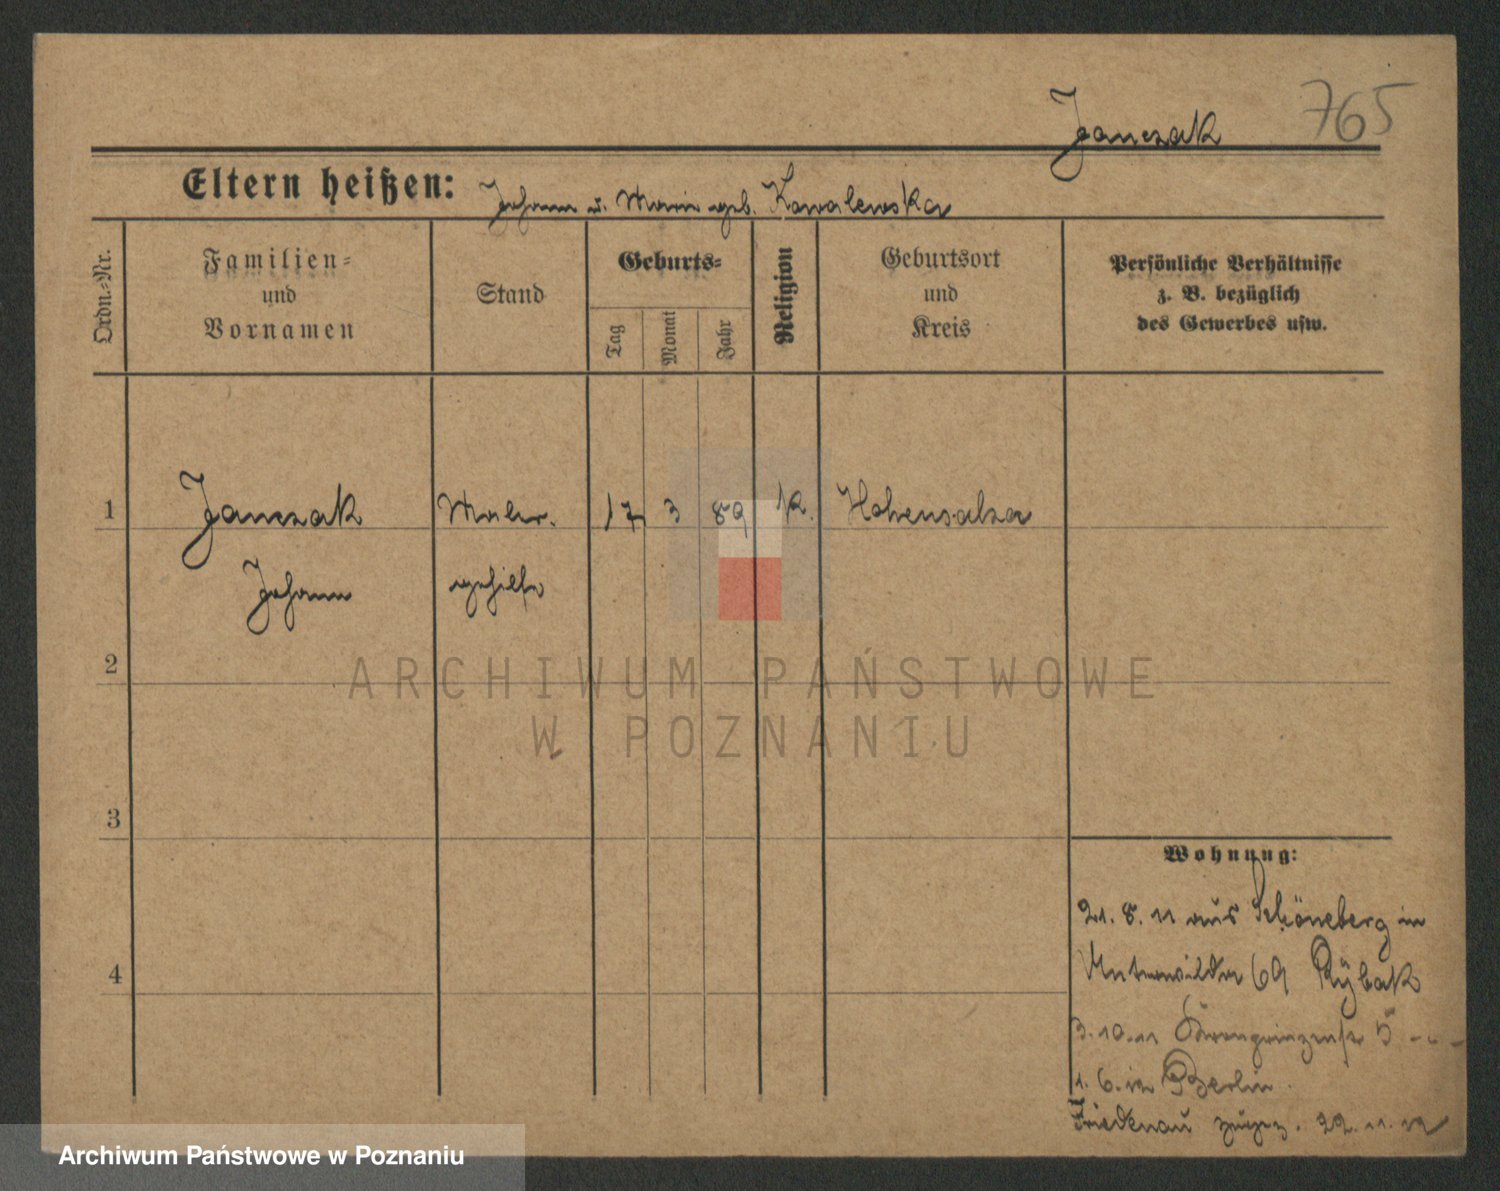 765
Janczak
Eltern heißen: Johann u. Marie geb. Kowalewska
Ordn.=Nr.
Familien=
und
Vornamen
Stand
Geburts=
Tag
Monat
Jahr
Religion
Geburtsort
und
Kreis
Persönliche Verhältnisse
z. B. bezüglich
des Gewerbes usw.
1 Janczak Maler. 17 3 89 K. Hohensalza
Johann gehilfe
2
ARCHIWUM PAŃSTWOWE
W POZNANIU
3
Wohnung:
21. 8. 11 aus Schöneberg in
Unterwilda 69 Rybak
4
3. 10. 11 Kronprinzenstr 5
1. 6. 12 Berlin
Friedenau 22. 11. 12
Archiwum Państwowe w Poznaniu